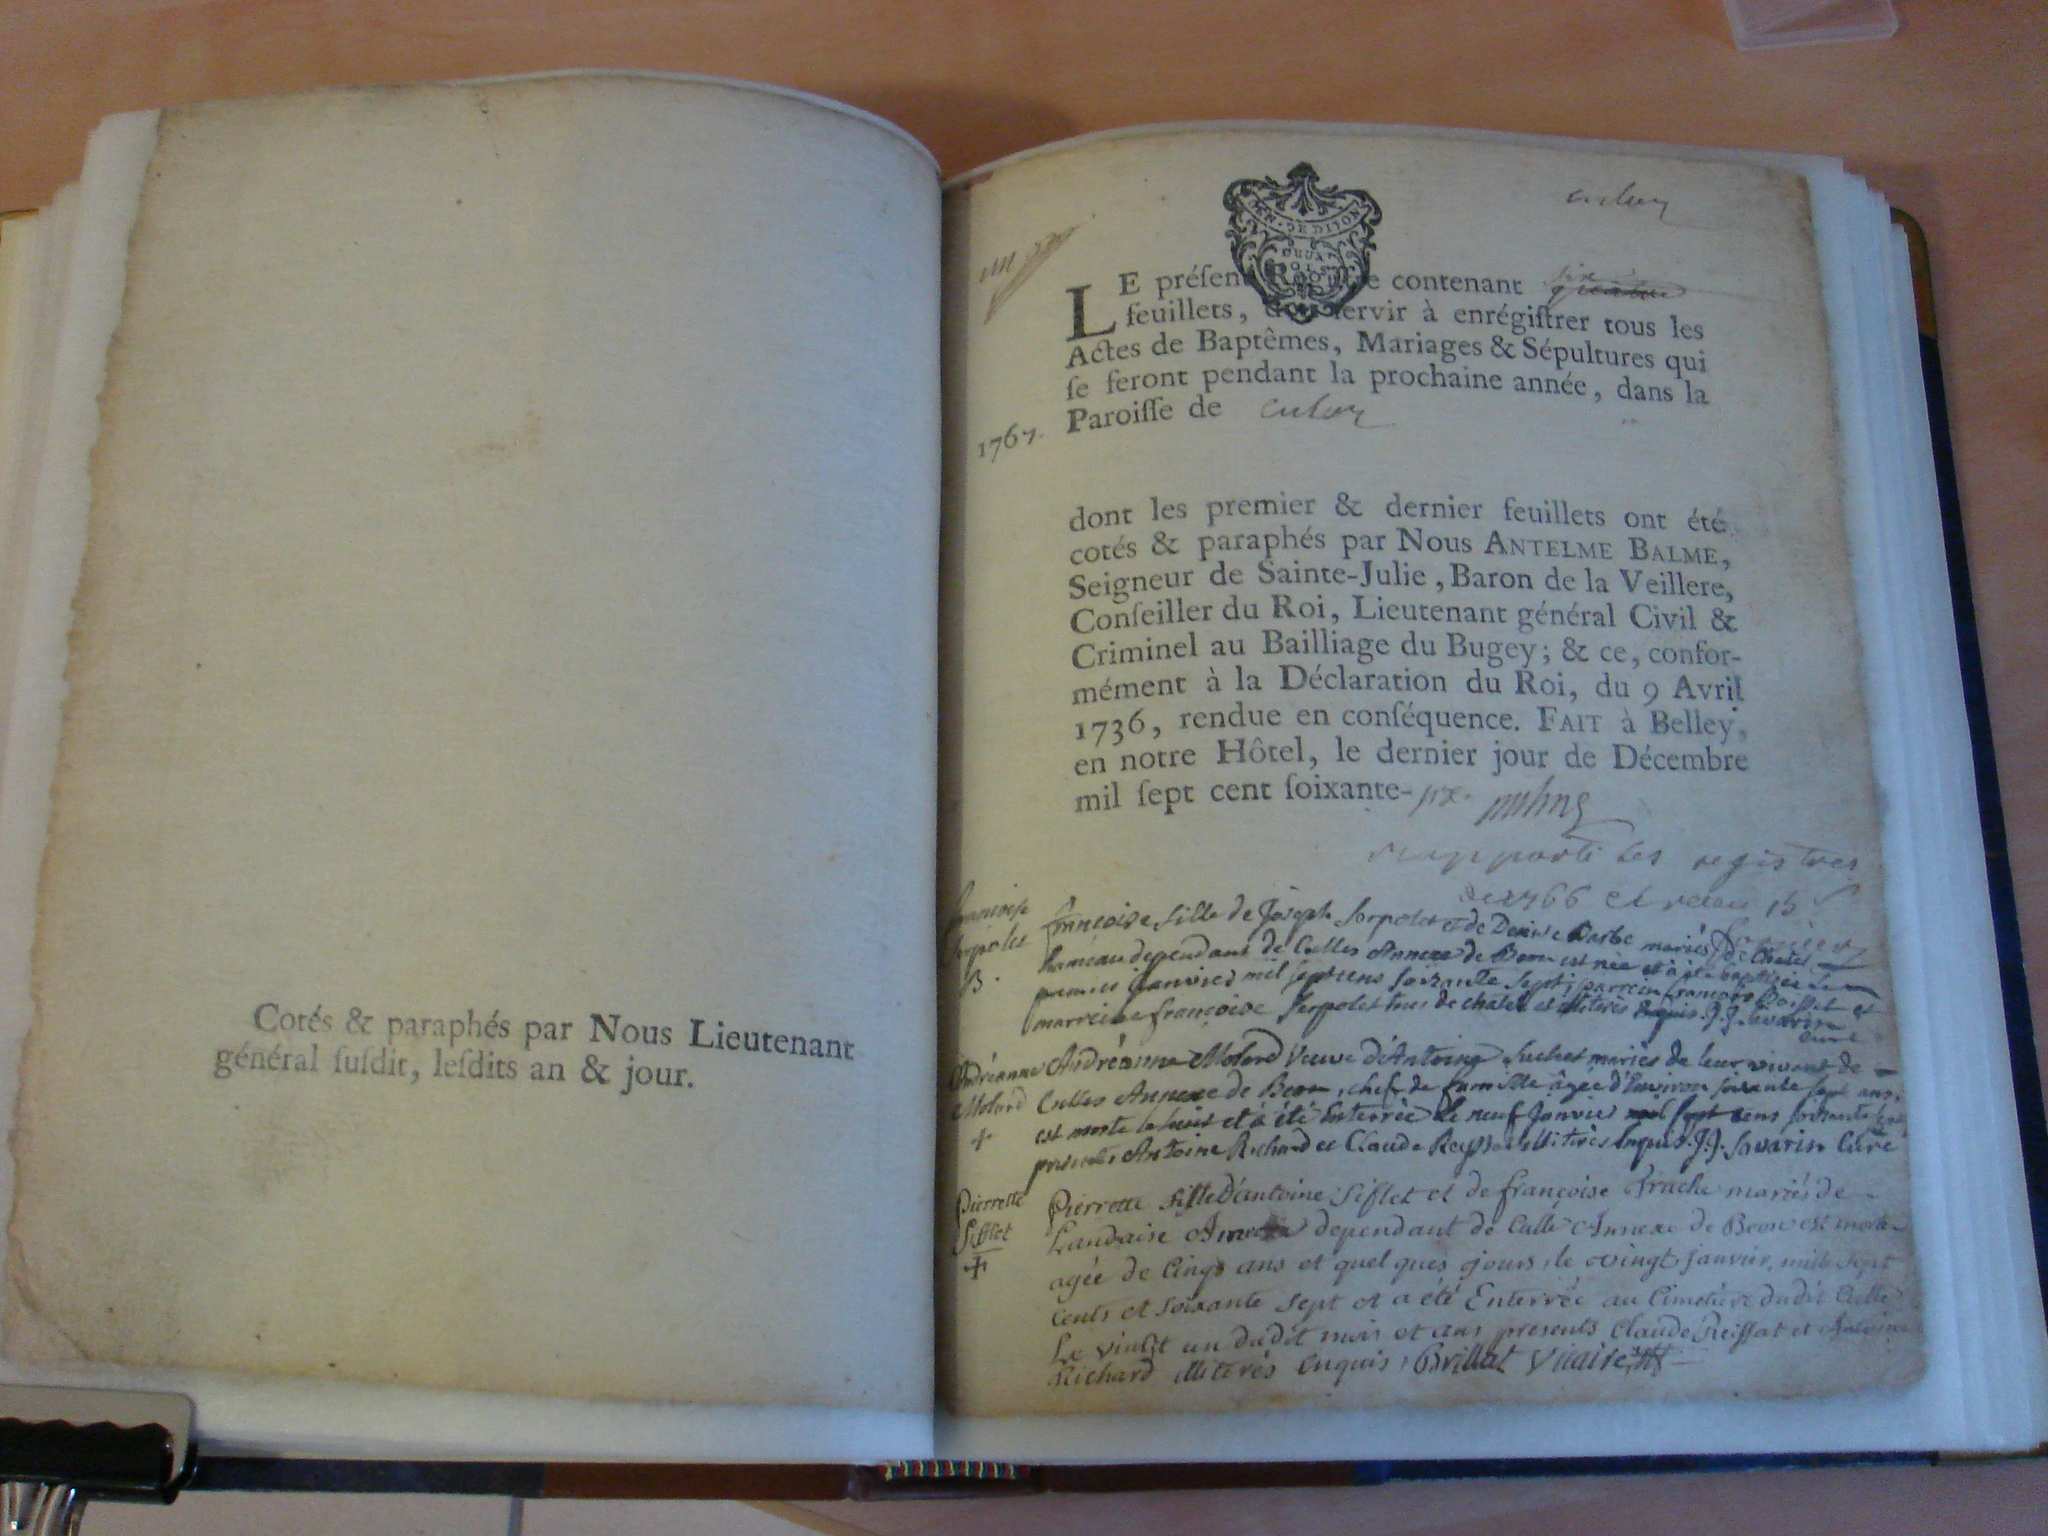 Cotés & paraphés par Nous Lieutenant
général ſuſdit, leſdits an & jour.
GEN. DE DIJON
DEUX
SOLS
LE préſent Regiſtre contenant six
feuillets, doit ſervir à enrégiſtrer tous les
Actes de Baptêmes, Mariages & Sépultures qui
ſe feront pendant la prochaine année, dans la
Paroiſſe de
1767.
dont les premier & dernier feuillets ont été
cotés & paraphés par Nous ANTELME BALME,
Seigneur de Sainte-Julie, Baron de la Veillere,
Conſeiller du Roi, Lieutenant général Civil &
Criminel au Bailliage du Bugey; & ce, confor-
mément à la Déclaration du Roi, du 9 Avril
1736, rendue en conſéquence. FAIT à Belley,
en notre Hôtel, le dernier jour de Décembre
mil ſept cent ſoixante-six.
rapporté les registres
de 1766 et
françoise
Serpolet
B.
françoise fille de Joseph Serpolet et de Denise Barbe mariés de Chatel
hameau dependant de Culles Annexe de Beon est née et a été baptisée le
premier Janvier mil sept cens soixante sept; parrein françois et
marreine françoise Serpolet tous de chatel et illiterés enquis. J.J. Savarin
Curé
Andréanne
Molard
+
Andréanne Molard Veuve d'Antoine Suchet mariés de leur vivant de
Culles Annexe de Beon, chef de famille âgée d'Environ soixante sept ans,
est morte le huit et a été Enterrée le neuf Janvier mil sept cens soixante sept
presents Antoine Richard et Claude illiterés Enquis. J.J. Savarin Curé
Pierrette
Sifflet
+
Pierrette fille d'antoine Siflet et de françoise frache mariés de
Landaise dependant de Culle Annexe de Beon est morte
agée de Cinqs ans et quel ques jours, le vingt janvier, mille sept
Cents et soixante sept et a été Enterrée au Cimetière dudit Culle
Le vintgt un dudit mois et ans presents Claude Reissat et Antoine
Richard illiterés Enquis, Brillat Vicaire